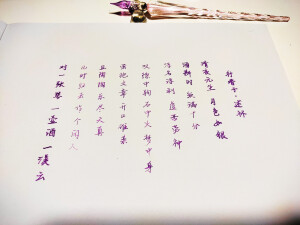 行香子·述怀
清夜无尘 月色如银
酒斟时 须满十分
浮名浮利 虚苦劳神
叹隙中驹 石中火 梦中身
虽抱文章 开口谁亲
且陶陶 乐尽天真
几时归去 作个闲人
对一张琴 一壶酒 一溪云